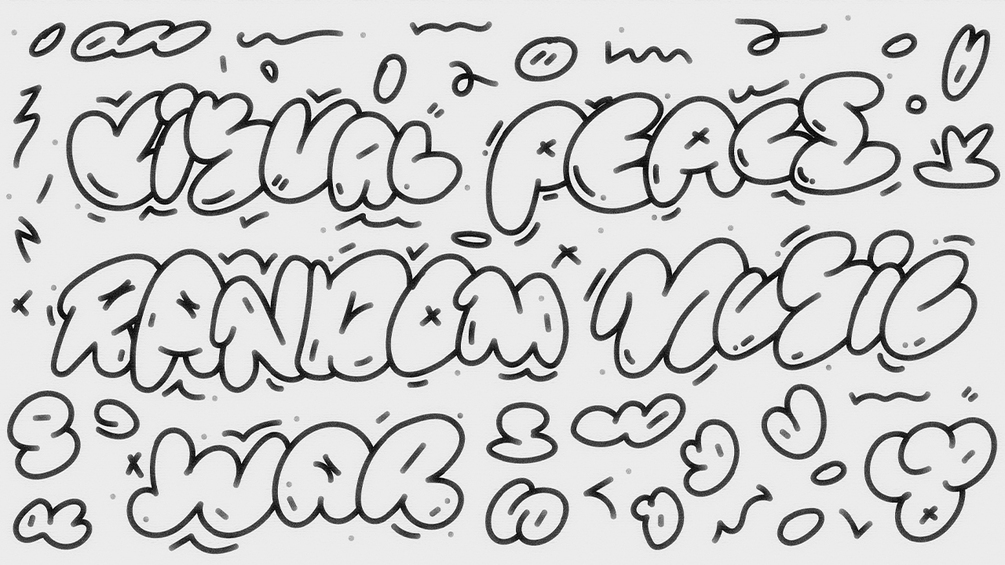 VISUAL PEACE
RANDOM MUSIC
WAR